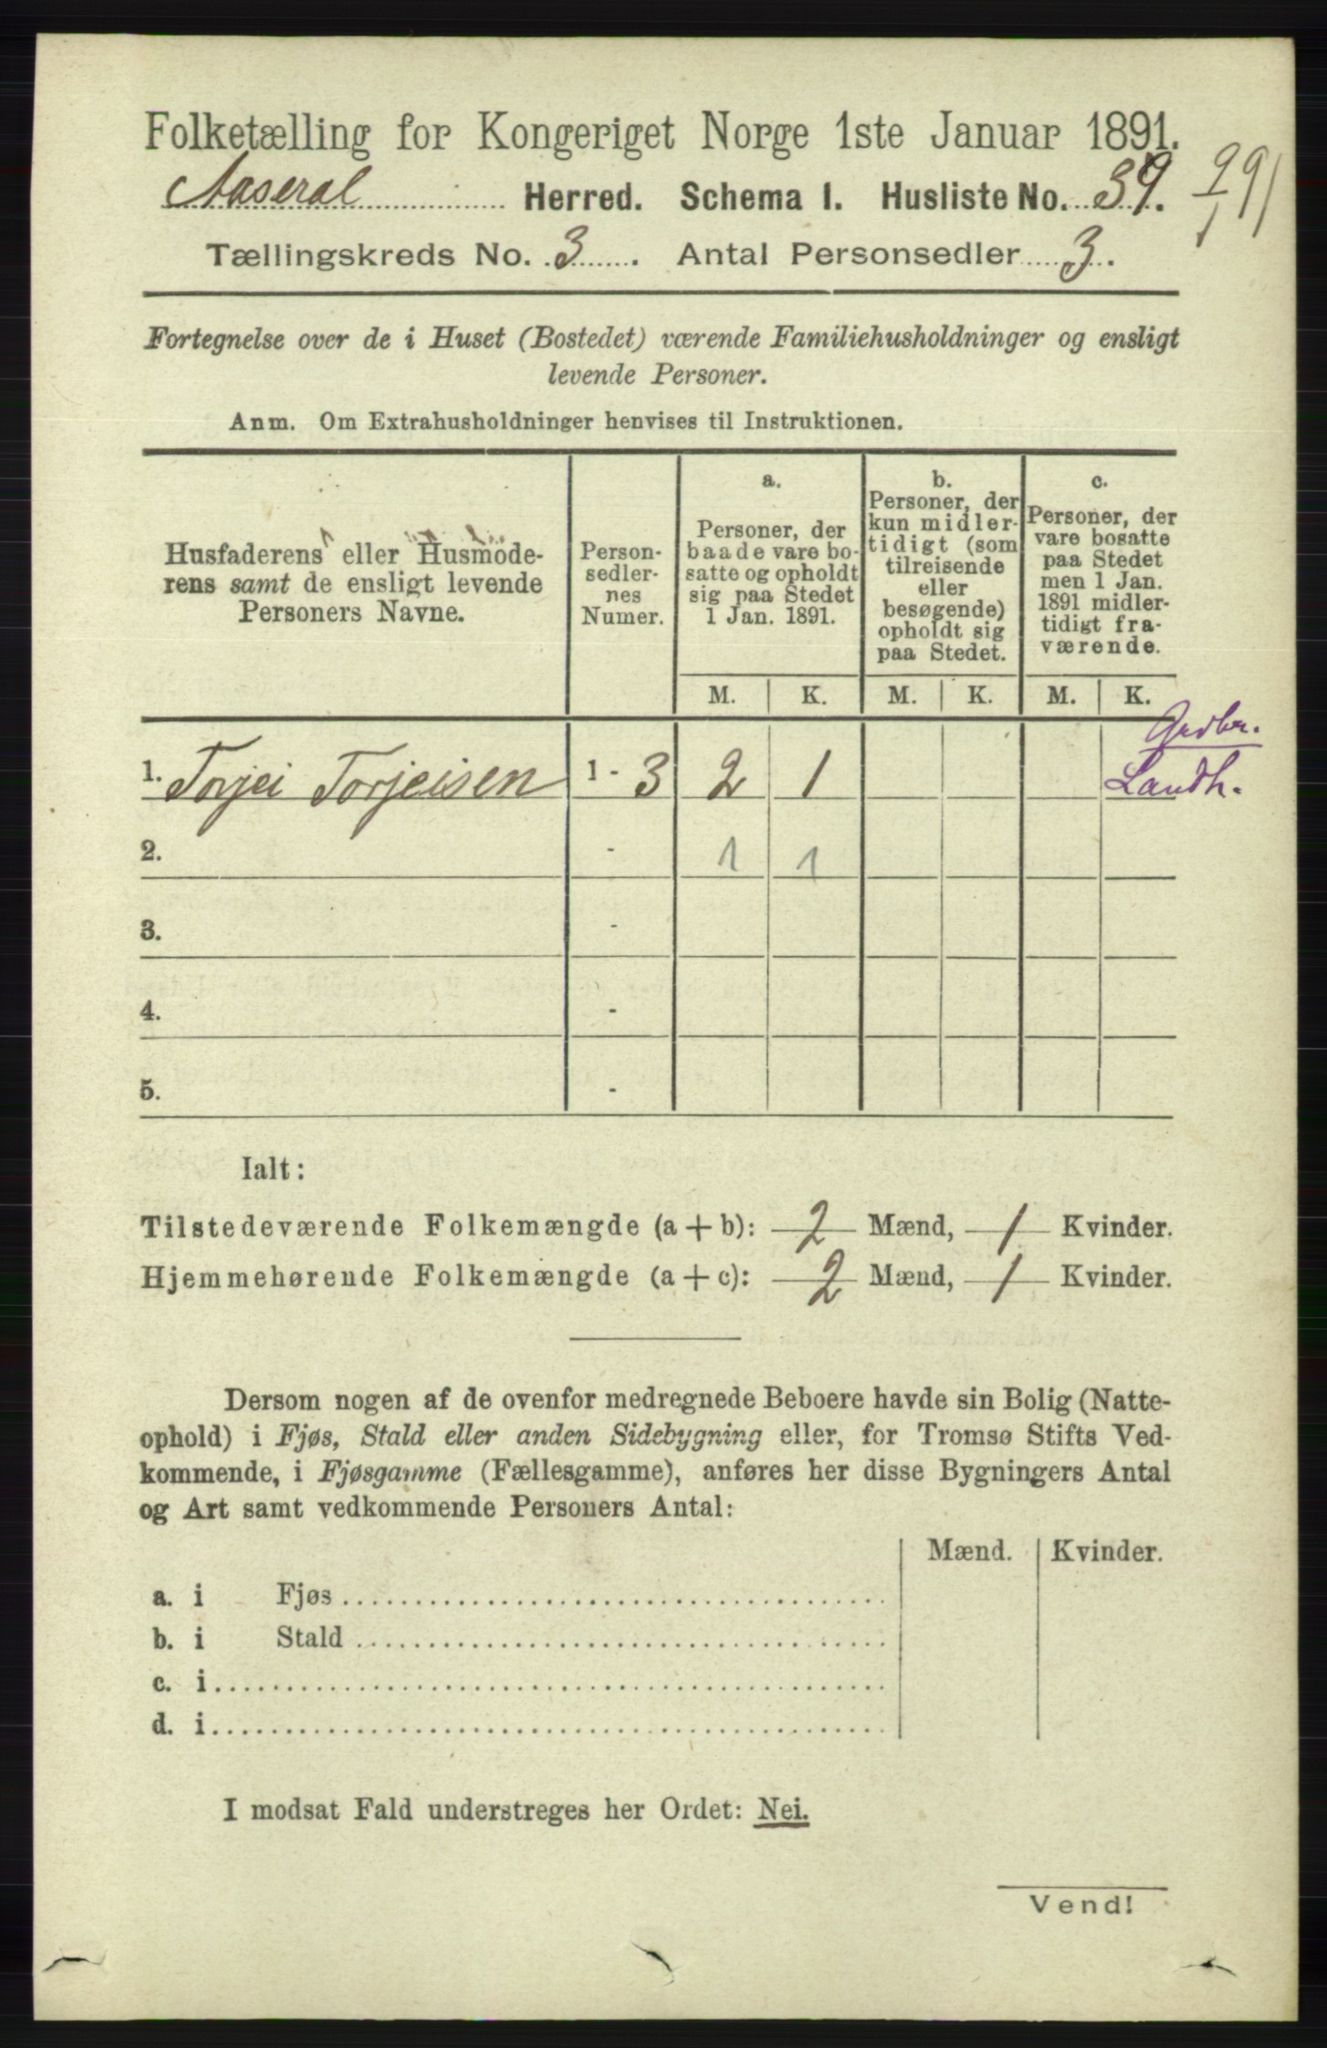 Folketælling for Kongeriget Norge 1ste Januar 1891.
Aaseral Herred. Schema I. Husliste No. 39.
Tællingskreds No. 3. Antal Personsedler 3.
Fortegnelse over de i Huset (Bostedet) værende Familiehusholdninger og ensligt
levende Personer.
Anm. Om Extrahusholdninger henvises til Instruktionen.
Husfaderens eller Husmode-
rens samt de ensligt levende
Personers Navne.
Person-
sedler-
nes
Numer.
a.
Personer, der
baade vare bo-
satte og opholdt
sig paa Stedet
1 Jan. 1891.
b.
Personer, der
kun midler-
tidigt (som
tilreisende
eller
besøgende)
opholdt sig
paa Stedet.
c.
Personer, der
vare bosatte
paa Stedet
men 1 Jan.
1891 midler-
tidigt fra-
værende.
M. K. M. K. M. K.
Grdbr.
1. Torjei Torjeisen 1 - 3 2 1 Landh.
2. - 1 1
3. -
4. -
5. -
Ialt:
Tilstedeværende Folkemængde (a + b): 2 Mænd, 1 Kvinder.
Hjemmehørende Folkemængde (a + c): 2 Mænd, 1 Kvinder.
Dersom nogen af de ovenfor medregnede Beboere havde sin Bolig (Natte-
ophold) i Fjøs, Stald eller anden Sidebygning eller, for Tromsø Stifts Ved-
kommende, i Fjøsgamme (Fællesgamme), anføres her disse Bygningers Antal
og Art samt vedkommende Personers Antal:
Mænd. Kvinder.
a. i Fjøs
b. i Stald
c. i
d. i
I modsat Fald understreges her Ordet: Nei.
Vend!